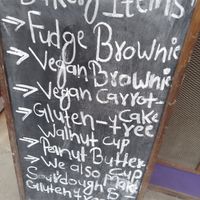 Bakery Items
→ Fudge Brownie
→ Vegan Brownie
→ Vegan Carrot-
Cake
→ Gluten-free
Walnut cup
→ Peanut Butter
Cup
→ We also make
Sourdough &
Gluten-free